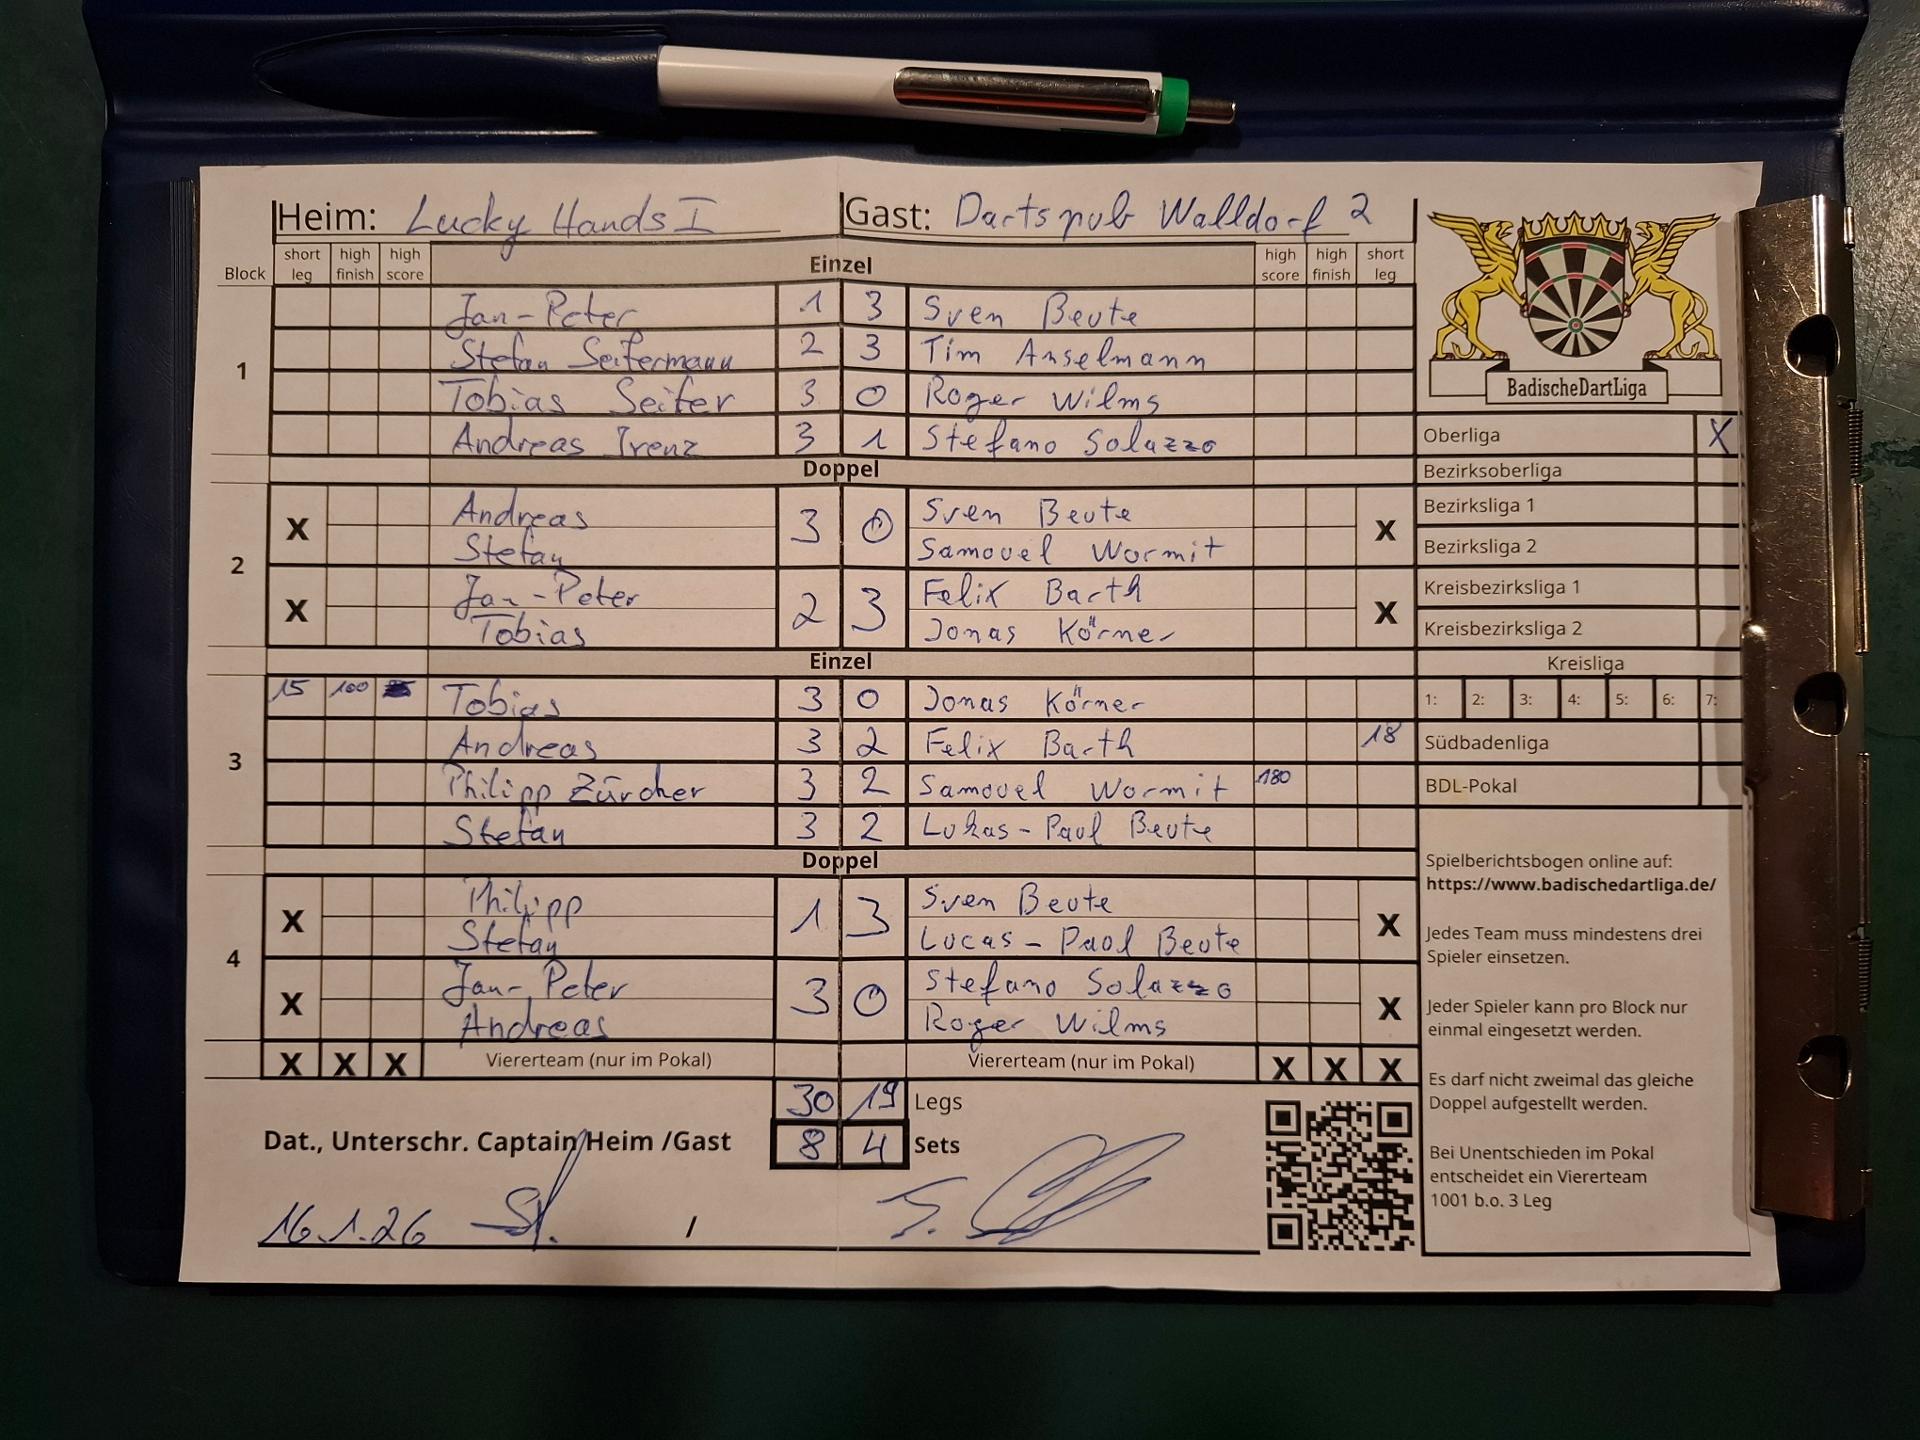 Heim: Lucky Hands I Gast: Dartspub Walldorf 2
Block short leg high finish high score Einzel high score high finish short leg
1
Jan-Peter 1 3 Sven Beute
Stefan Seifermann 2 3 Tim Anselmann
Tobias Seifer 3 0 Roger Wilms
Andreas Irenz 3 1 Stefano Solazzo
Doppel
2
X Andreas 3 0 Sven Beute X
Stefan Samouel Wormit
X Jan-Peter 2 3 Felix Barth X
Tobias Jonas Körner
Einzel
3
15 100 Tobias 3 0 Jonas Körner
Andreas 3 2 Felix Barth 18
Philipp Zürcher 3 2 Samouel Wormit 180
Stefan 3 2 Lukas-Paul Beute
Doppel
4
X Philipp 1 3 Sven Beute X
Stefan Lucas-Paul Beute
X Jan-Peter 3 0 Stefano Solazzo X
Andreas Roger Wilms
X X X Viererteam (nur im Pokal) Viererteam (nur im Pokal) X X X
30 19 Legs
Dat., Unterschr. Captain Heim /Gast 8 4 Sets
16.1.26 /
BadischeDartLiga
Oberliga X
Bezirksoberliga
Bezirksliga 1
Bezirksliga 2
Kreisbezirksliga 1
Kreisbezirksliga 2
Kreisliga
1: 2: 3: 4: 5: 6: 7:
Südbadenliga
BDL-Pokal
Spielberichtsbogen online auf:
https://www.badischedartliga.de/
Jedes Team muss mindestens drei
Spieler einsetzen.
Jeder Spieler kann pro Block nur
einmal eingesetzt werden.
Es darf nicht zweimal das gleiche
Doppel aufgestellt werden.
Bei Unentschieden im Pokal
entscheidet ein Viererteam
1001 b.o. 3 Leg